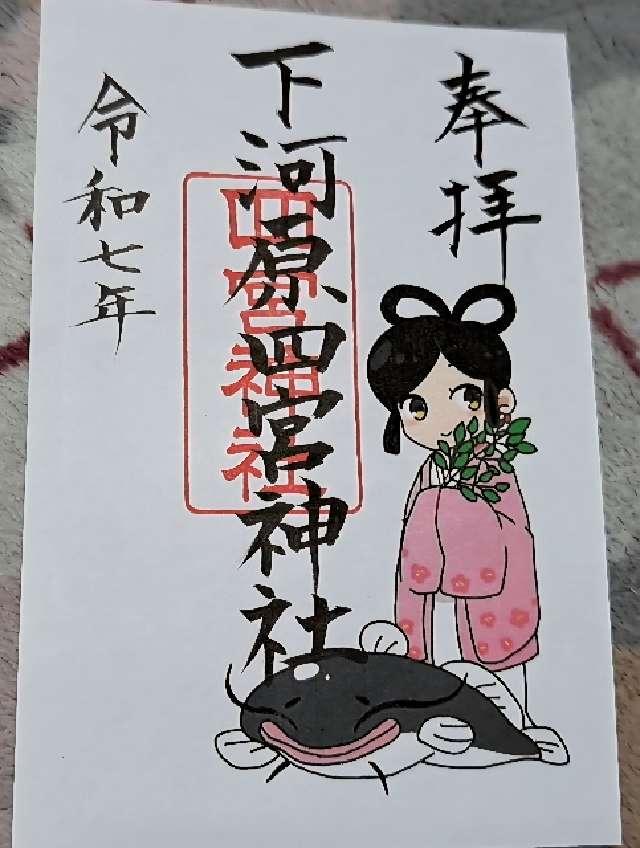 奉拝
下河原四宮神社
四宮神社
令和七年